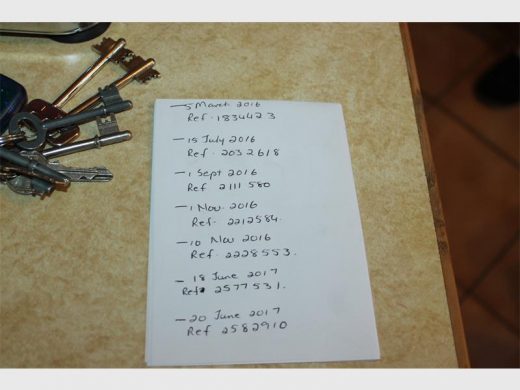 — 5 March 2016
Ref. 1834423
— 15 July 2016
Ref. 2032618
— 1 Sept 2016
Ref 2111580
— 1 Nov. 2016
Ref. 2212584.
— 10 Nov 2016
Ref. 2228553.
— 18 June 2017
Ref 2577531.
— 20 June 2017
Ref 2582910